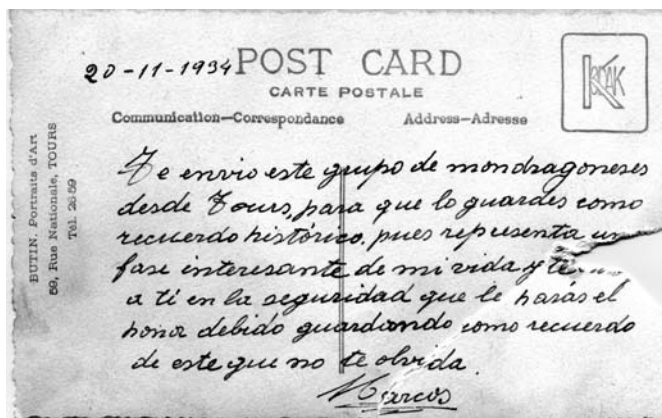 20-11-1934
POST CARD
CARTE POSTALE
Communication—Correspondance
Address—Adresse
KODAK
BUTIN, Portraits d'Art
59, Rue Nationale, TOURS
Tél. 26.59
Te envio este grupo de mondragoneses
desde Tours, para que lo guardes como
recuerdo histórico, pues representa un
fase interesante de mi vida y te
a tí en la seguridad que le harás el
honor debido guardando como recuerdo
de este que no te olvida.
Marcos